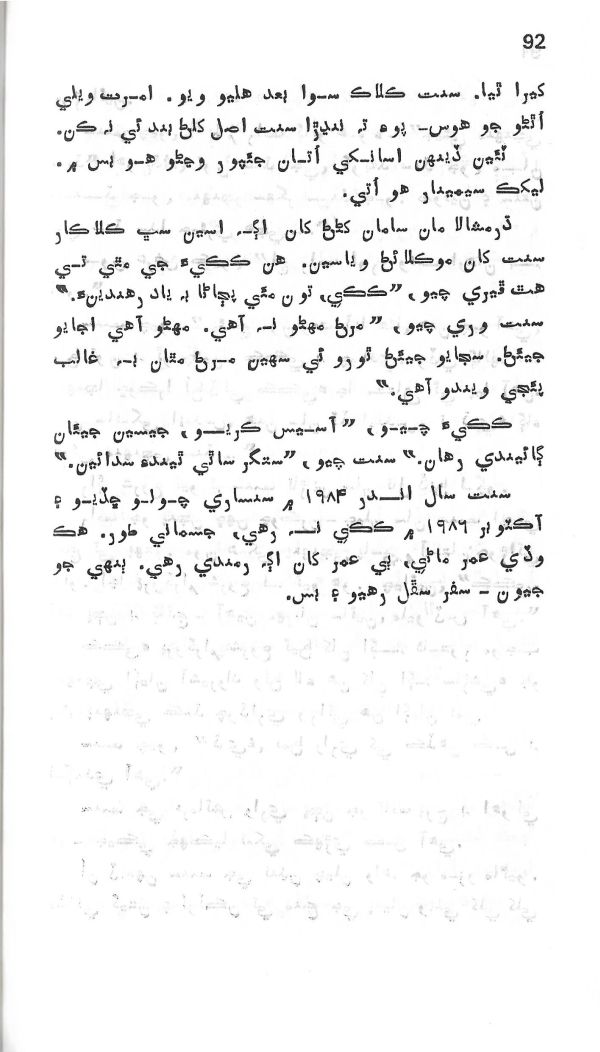 92
کيرا ٿيا. سنت ڪلاڪ سوا بعد هليو ويو. امرت ويلي
اُٿڻو جو هوس- پوءِ تہ ننڊڙا سنت اصل کلڻ بند ئي نہ ڪن.
ٽئين ڏينهن اسانکي اُتان جئپور وڃڻو هو بس ۾.
ليکڪ سيمينار هو اُتي.
ڌرمشالا مان سامان کڻڻ کان اڳ، اسين سڀ ڪلاڪار
سنت کان موڪلائڻ وياسين. هن ڪڪيءَ جي مٿي تي
هٿ ڦيري چيو، ”ڪڪي، تون مئي پڄاڻا بہ ياد رهندينءَ.“
سنت وري چيو، ”مرڻ مهڻو نہ آهي. مهڻو آهي اجايو
جيئڻ. سجايو جيئڻ ٿورو ئي سهين مرڻ مٿان بہ غالب
پئجي ويندو آهي.“
ڪڪيءَ چيو، ”آسيس ڪريو، جيسين جيئان
ڳائيندي رهان.“ سنت چيو، ”ستگر سائي ٿيندءِ سدائين.“
سنت سال اندر ١٩٨۴ ۾ سنساري چولو ڇڏيو ۽
آڪٽوبر ١٩٨٦ ۾ ڪڪي نہ رهي، جسماني طور. هڪ
وڏي عمر ماڻي، ٻي عمر کان اڳ رمندي رهي. ٻنهي جو
جيون - سفر سڦل رهيو ۽ بس.